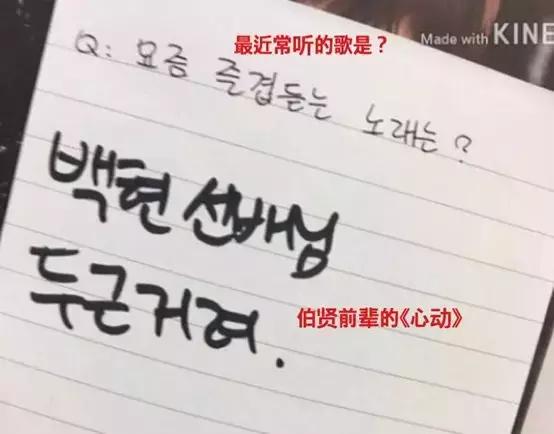 最近常听的歌是？
Made with KINE
Q: 요즘 즐겁듣는 노래는?
백현 선배님
두근거려.
伯贤前辈的《心动》